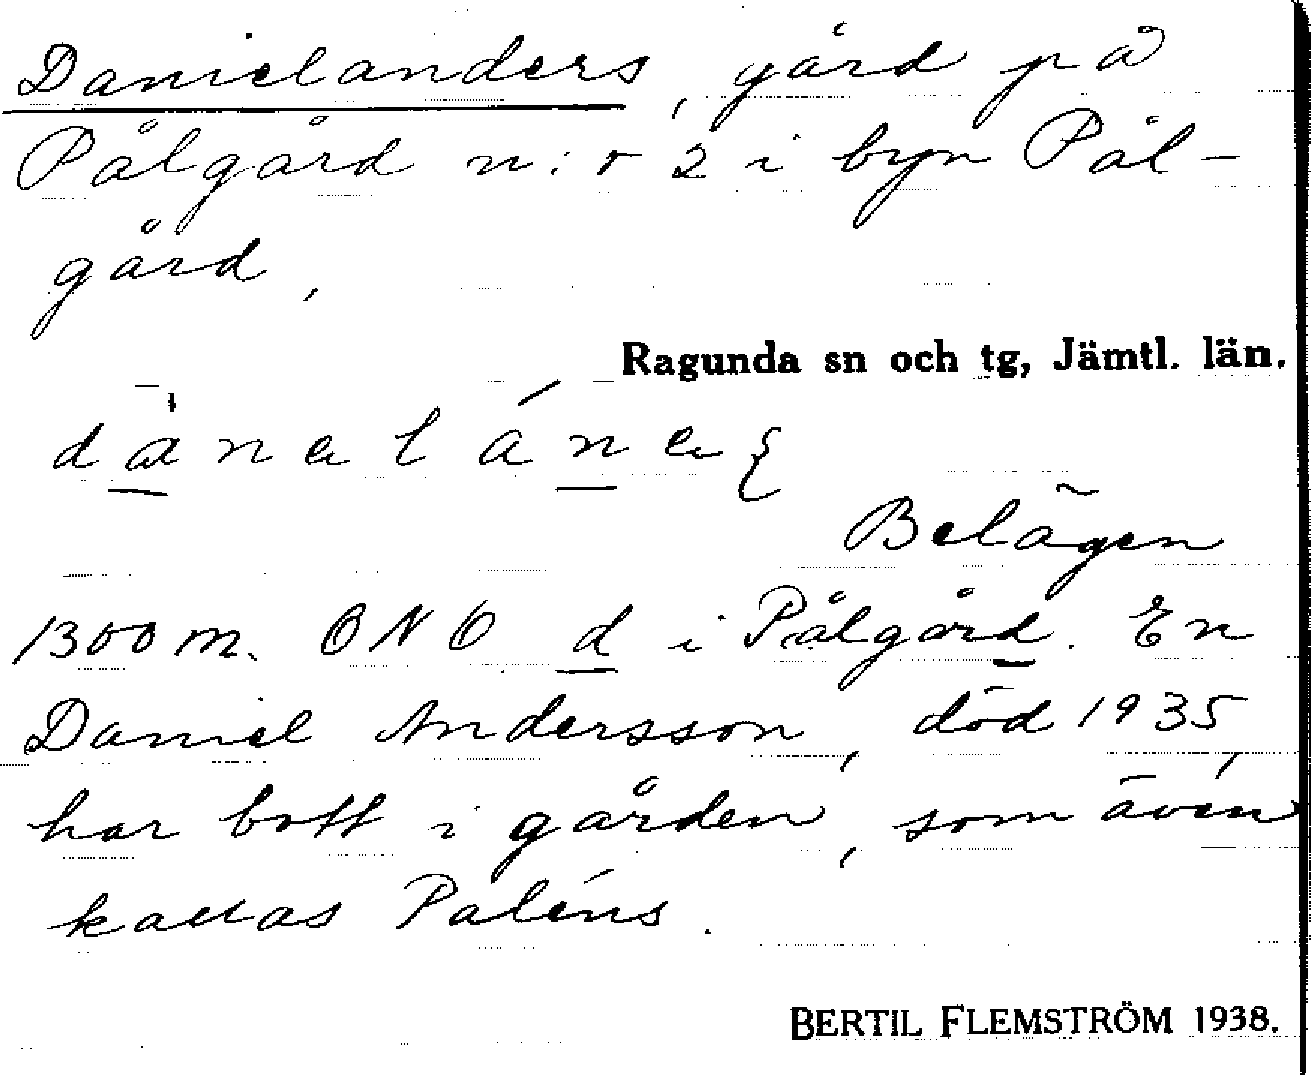 Danielanders, gård på
Pålgård n:r 2 i byn Pål-
gård,
Ragunda sn och tg, Jämtl. län.
Belägen
1300 m. ONO d i Pålgård. En
Daniel Andersson, död 1935,
har bott i gården, som även
kallas Paléns.
BERTIL FLEMSTRÖM 1938.